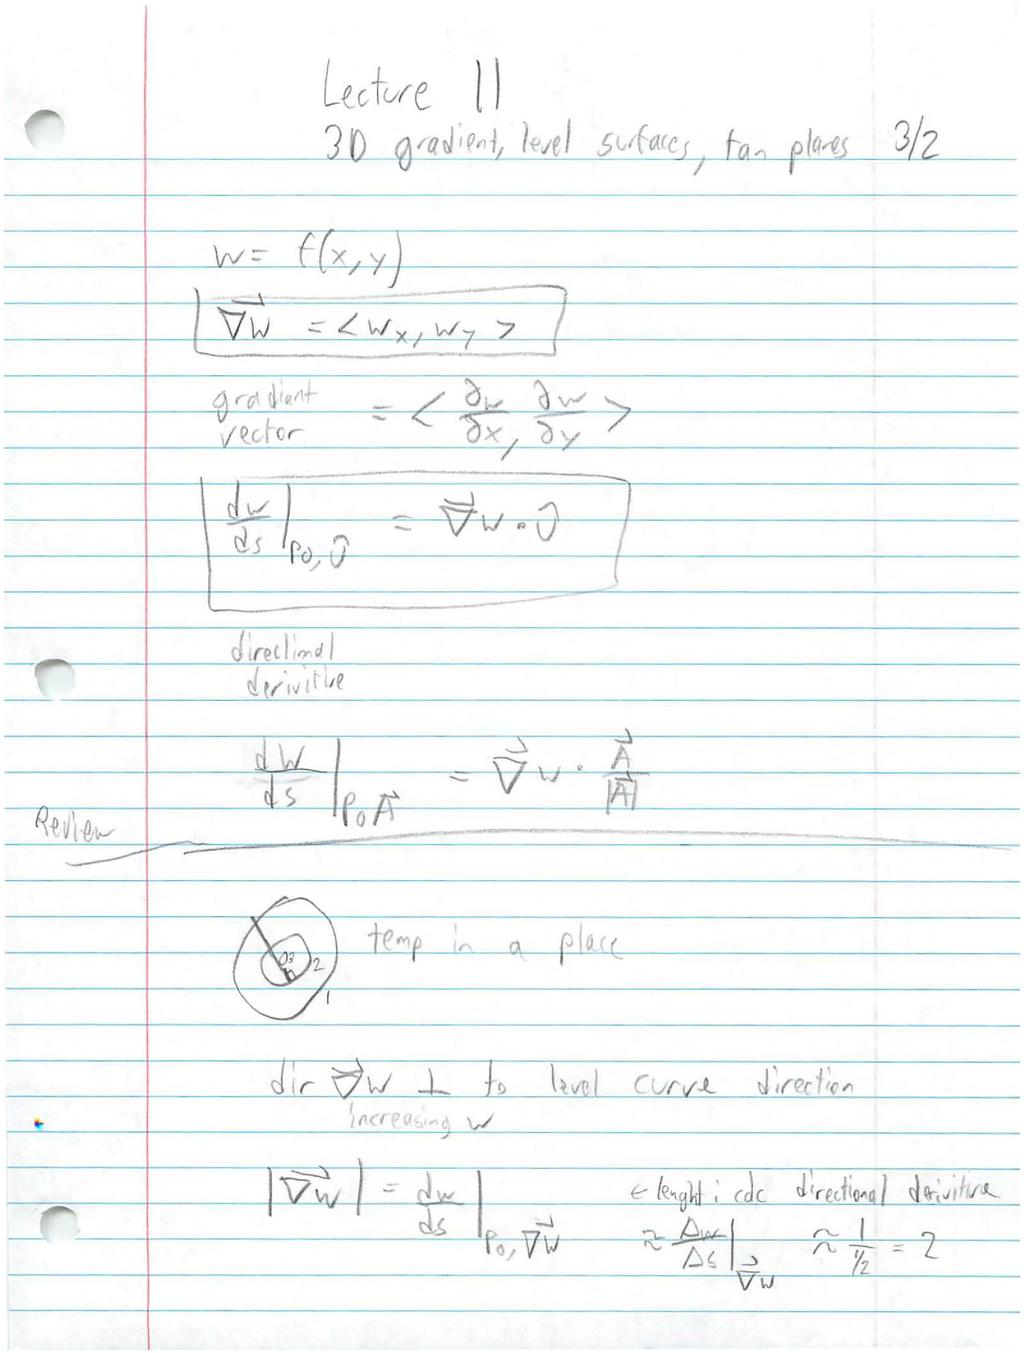 Lecture 11
3D gradient, level surfaces, tan planes 3/2
w = f(x, y)
∇⃗w = < wx, wy >
gradiant vector = < ∂w/∂x, ∂w/∂y >
dw/ds |P0, Û = ∇⃗w · Û
directional
derivitive
dw/ds |P0 A⃗ = ∇⃗w · A⃗/|A⃗|
Review
03 2 1 temp in a place
dir ∇⃗w ⊥ to level curve direction
increasing w
|∇⃗w| = dw/ds |P0, ∇⃗w ← lenght : directional derivitive
≈ Δw/Δs |∇⃗w ≈ 1/½ = 2